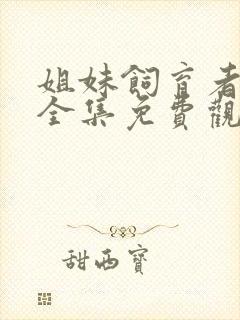 姐妹飼育者
全集免費觀
甜西寶